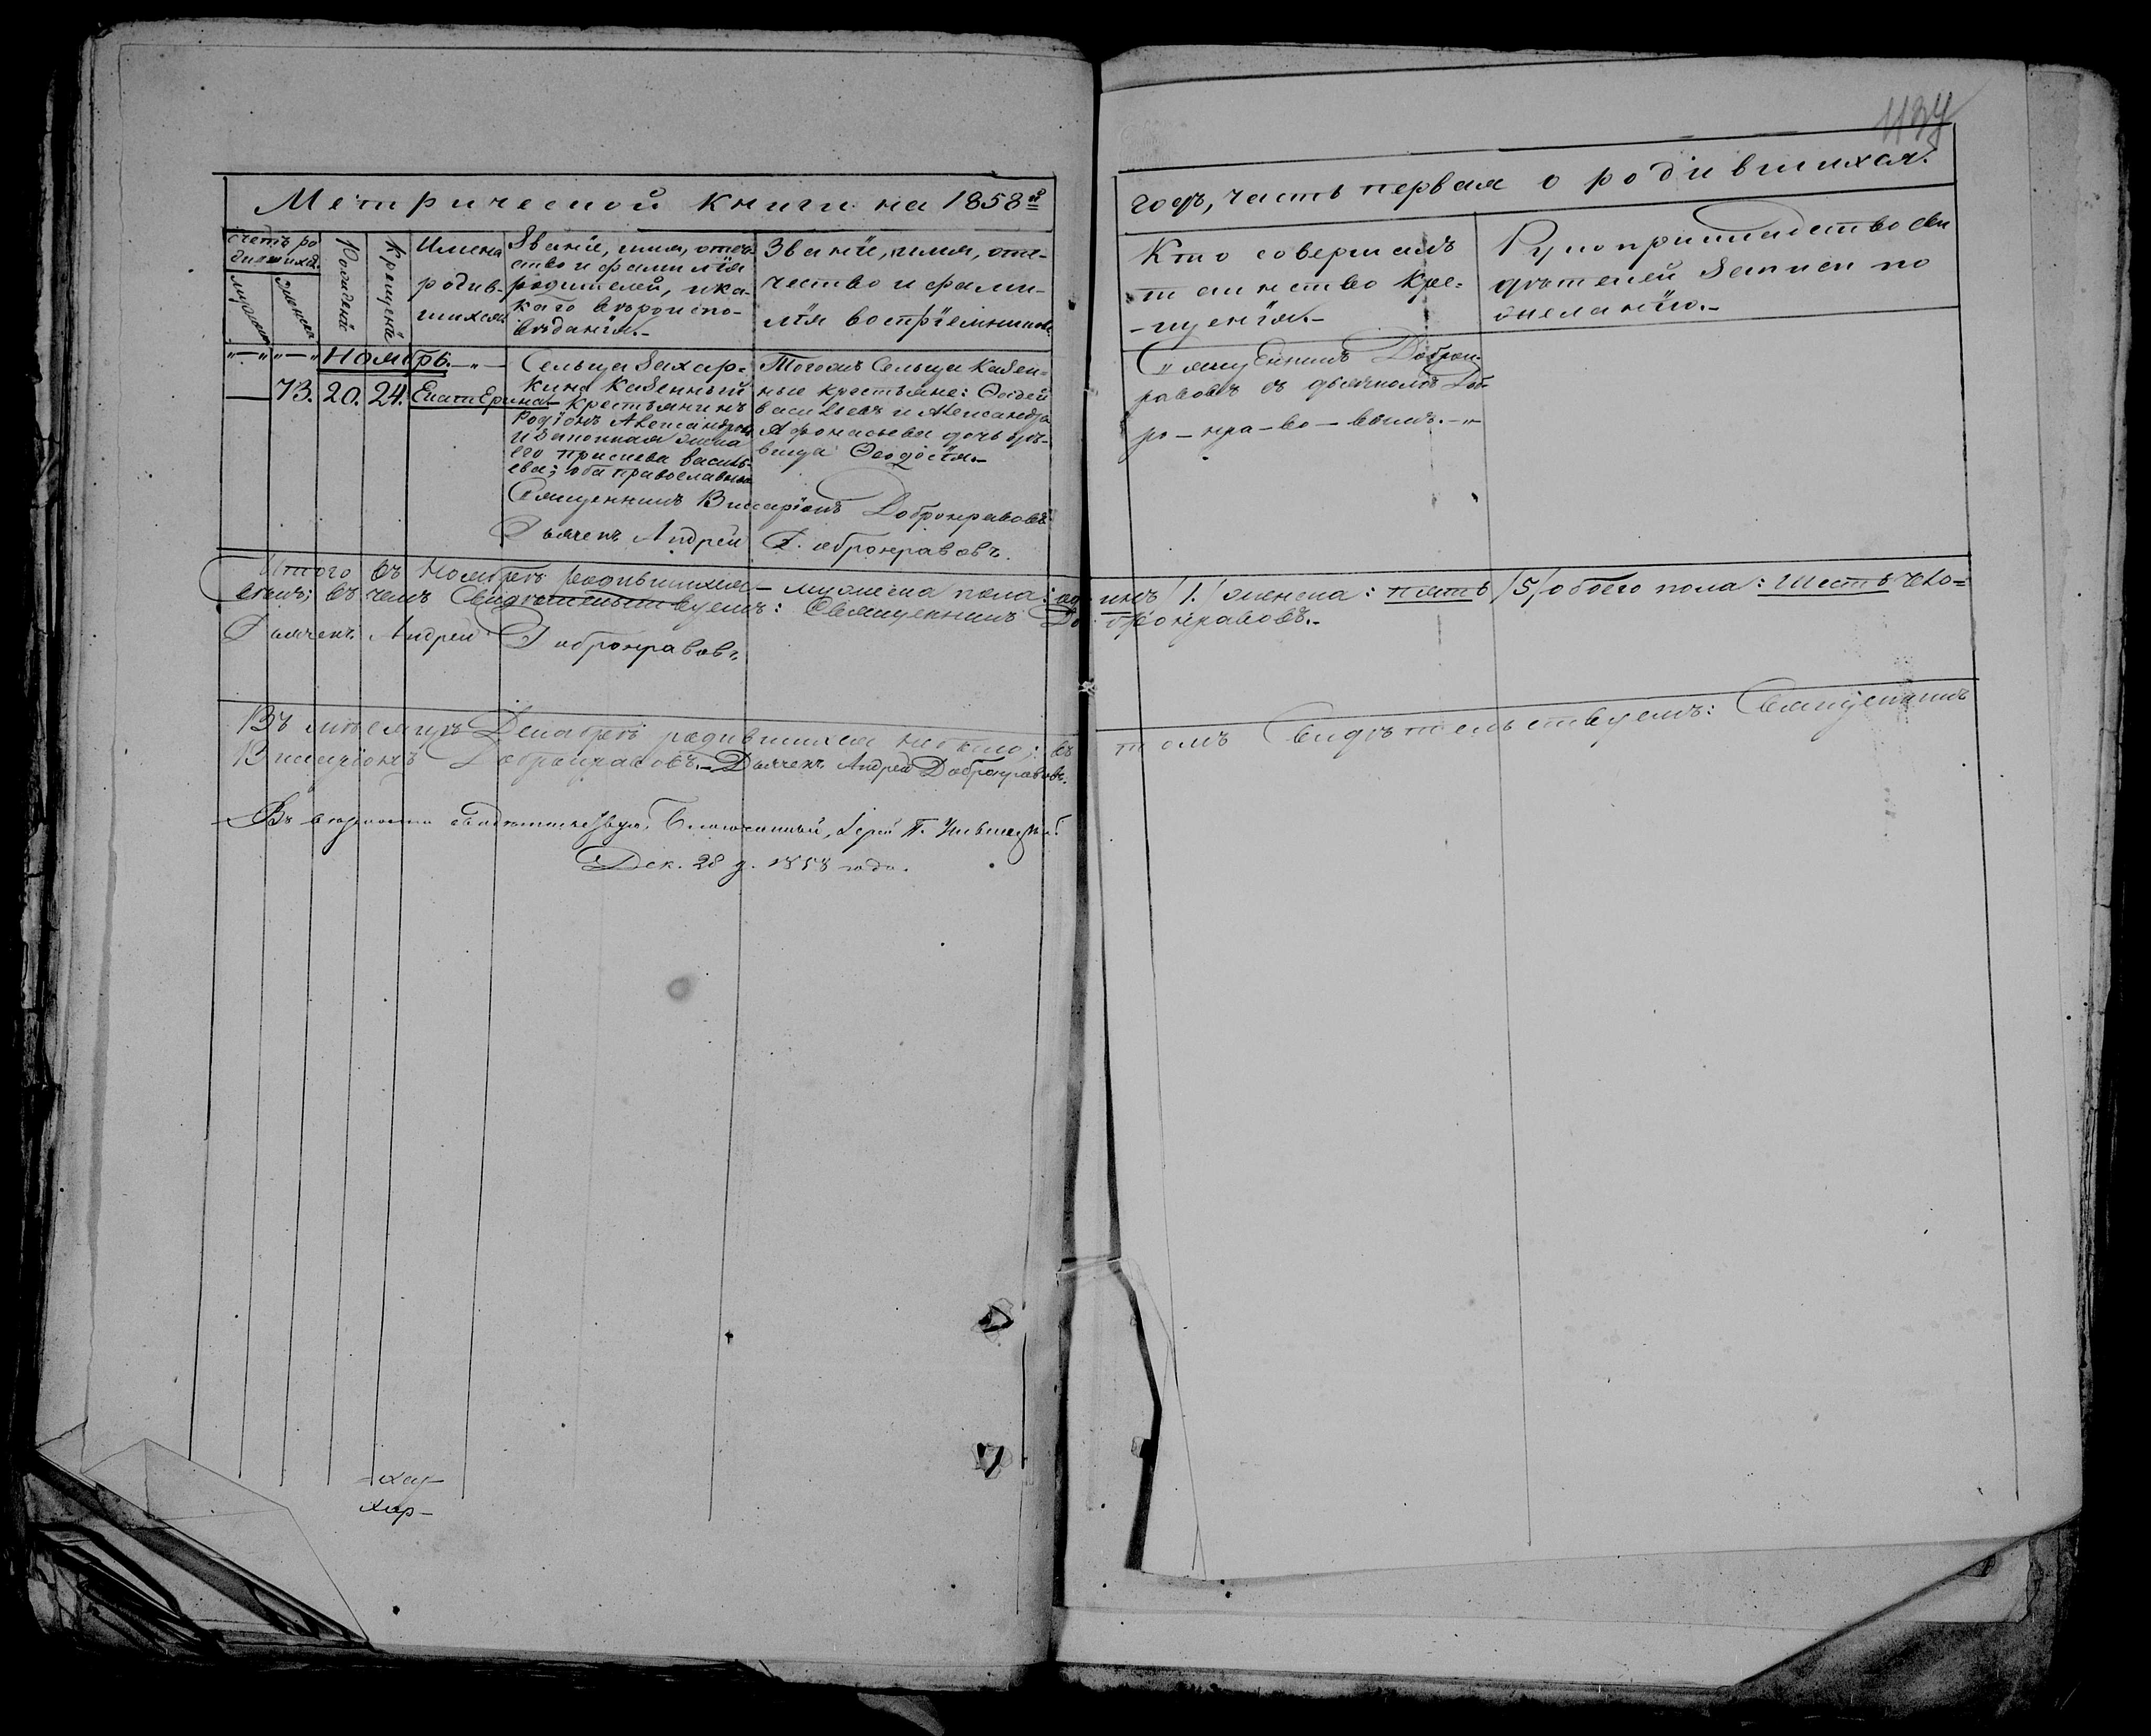 1134
Метрической книги на 1858й
годъ, часть первая о родившихся.
Счетъ ро
дившихся.
мужеска
женска
Рожденія
Крещенія
Имена
родив-
шихся
Званіе, имя, отче-
ство и фамилія
родителей, и ка-
кого вѣроиспо-
вѣданія.-
Званіе, имя, оте-
чество и фами-
лія воспріемниковъ
Кто совершалъ
таинство кре-
-щенія.-
Рукоприкладство сви
дѣтелей записи по
желанію.-
Ноябрь.
73. 20. 24. Екатерина
Сельца Захар-
кина казенный
крестьянинъ
Родіонъ Александровъ
и законная жена
его Васильева;
оба православные
Тогожъ Сельца казен-
ные крестьяне:
Васильевъ и Александра
Афонасьева дочь дѣ-
вица Ѳеодосія.-
Священникъ Добро-
равовъ съ дьячкомъ Доб-
ро-нра-во-вымъ.-"-
Священникъ Виссаріонъ Добронравовъ
Дьячекъ Андрей Добронравовъ.
Итого въ Ноябрѣ родившихся - мужеска пола: одинъ /1./ женска: пять /5/, обоего пола: Шесть чело-
вѣкъ; въ чемъ Свидѣтельствуемъ: Священникъ Добронравовъ.-
Дьячекъ Андрей Добронравовъ.
Въ мѣсяцѣ Декабрѣ родившихся не было; въ томъ Свидѣтельствуемъ: Священникъ
Виссаріонъ Добронравовъ.- Дьячекъ Андрей Добронравовъ.
Въ вѣрности свидѣтельствую, Благочинный, Іерей П.
Дек. 28 д. 1858 года.